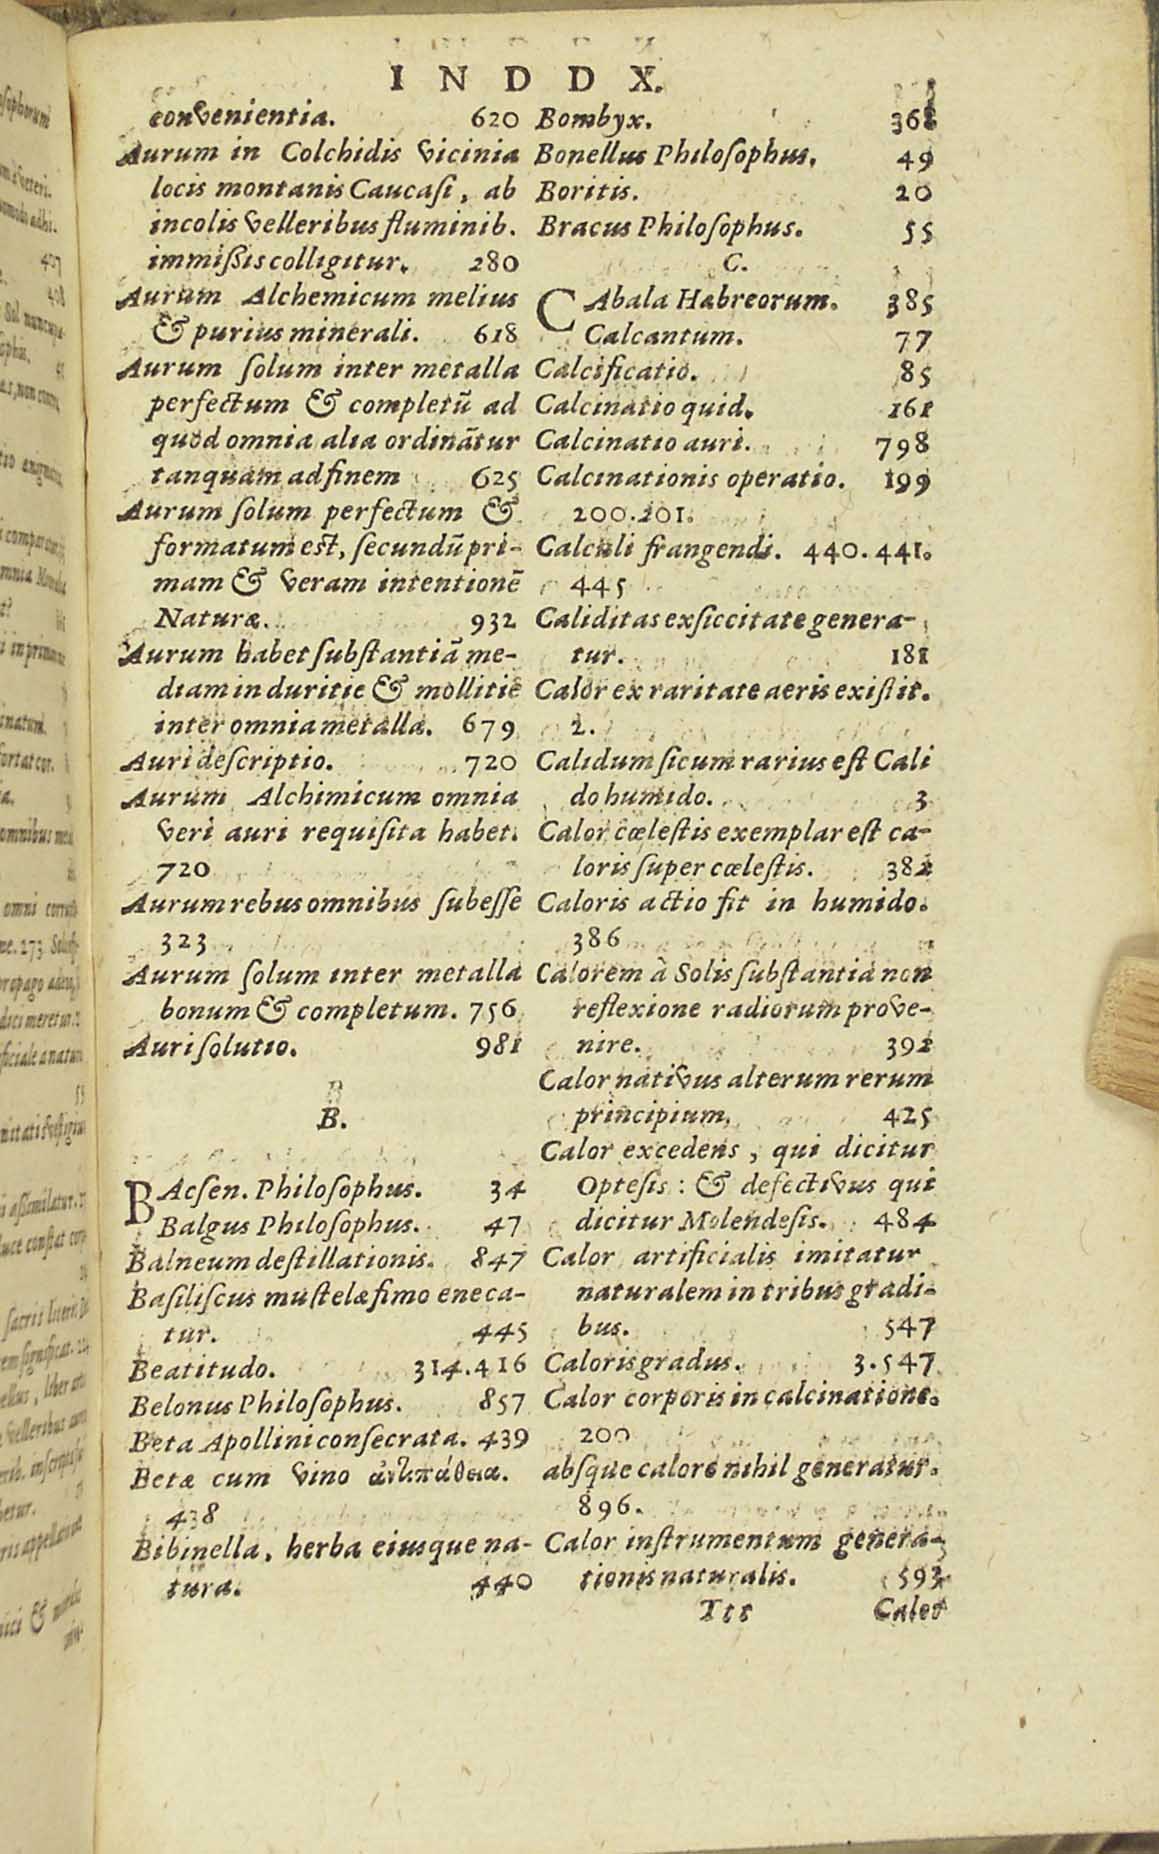 INDDX.
convenientia. 620
Aurum in Colchidis vicinia
locis montanis Caucasi, ab
incolis velleribus fluminib.
immissis colligitur. 280
Aurum Alchemicum melius
& purius minerali. 618
Aurum solum inter metalla
perfectum & completũ ad
quod omnia alia ordinãtur
tanquam ad finem 625
Aurum solum perfectum &
formatum est, secundũ pri-
mam & veram intentionẽ
Naturæ. 932
Aurum habet substantiã me-
diam in duritie & mollitie
inter omnia metalla. 679
Auri descriptio. 720
Aurum Alchimicum omnia
veri auri requisita habet.
720
Aurum rebus omnibus subesse
323
Aurum solum inter metalla
bonum & completum. 756
Auri solutio. 981
B.
BAcsen. Philosophus. 34
Balgus Philosophus. 47
Balneum destillationis. 847
Basiliscus mustelæ fimo eneca-
tur. 445
Beatitudo. 314.416
Belonus Philosophus. 857
Beta Apollini consecrata. 439
Betæ cum vino ἀντιπάθεια.
438
Bibinella, herba eiusque na-
tura. 440
Bombyx. 368
Bonellus Philosophus. 49
Boritis. 20
Bracus Philosophus. 55
C.
CAbala Habreorum. 385
Calcantum. 77
Calcificatio. 85
Calcinatio quid. 161
Calcinatio auri. 798
Calcinationis operatio. 199
200.201.
Calculi frangendi. 440.441.
445
Caliditas ex siccitate genera-
tur. 181
Calor ex raritate aeris existit.
2.
Calidum sicum rarius est Cali
do humido. 3
Calor cœlestis exemplar est ca-
loris super cœlestis. 382
Caloris actio fit in humido.
386
Calorem à Solis substantia non
reflexione radiorum prove-
nire. 392
Calor nativus alterum rerum
principium. 425
Calor excedens, qui dicitur
Optesis: & defectivus qui
dicitur Molendesis. 484
Calor artificialis imitatur
naturalem in tribus gradi-
bus. 547
Caloris gradus. 3.547
Calor corporis in calcinatione.
200
absque calore nihil generatur.
896.
Calor instrumentum genera-
tionis naturalis. 593
Ttt Calor